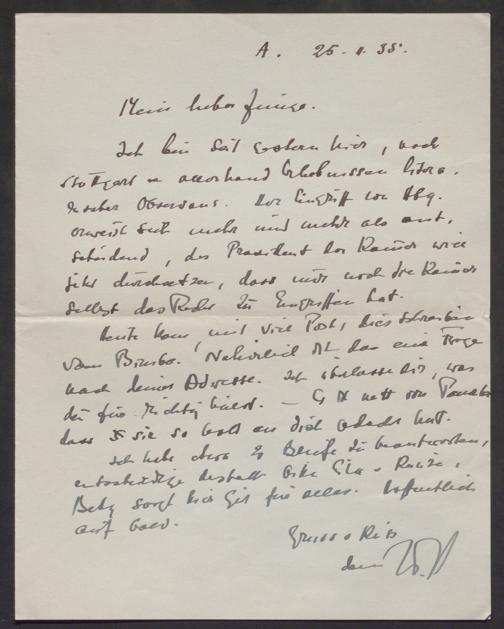 A. 25. 1. 35.
Mein lieber Junge.
Ich bin seit gestern hier, nach
Stuttgart u allerhand Erlebnissen
Der Eingriff von Hbg.
erweist sich mehr und mehr als ent-
scheidend, der Praesident der Kammer will
jetzt durchsetzen, dass nur noch die Kammer
selbst das Recht zu Eingriffen hat.
Heute kam mit viel Post, dies Schreiben
vom Natürlich ist das eine Frage
nach deiner Adresse. Ich überlasse dir, was
du für richtig hältst. – Es ist nett von
dass sie so bald an dich gedacht hat.
Ich habe etwa 20 Briefe zu beantworten,
entschuldige deshalb bitte Eile u Kürze,
Betty sorgt hier gut für alles. Hoffentlich
auf bald.
Gruss u Kuss
dein